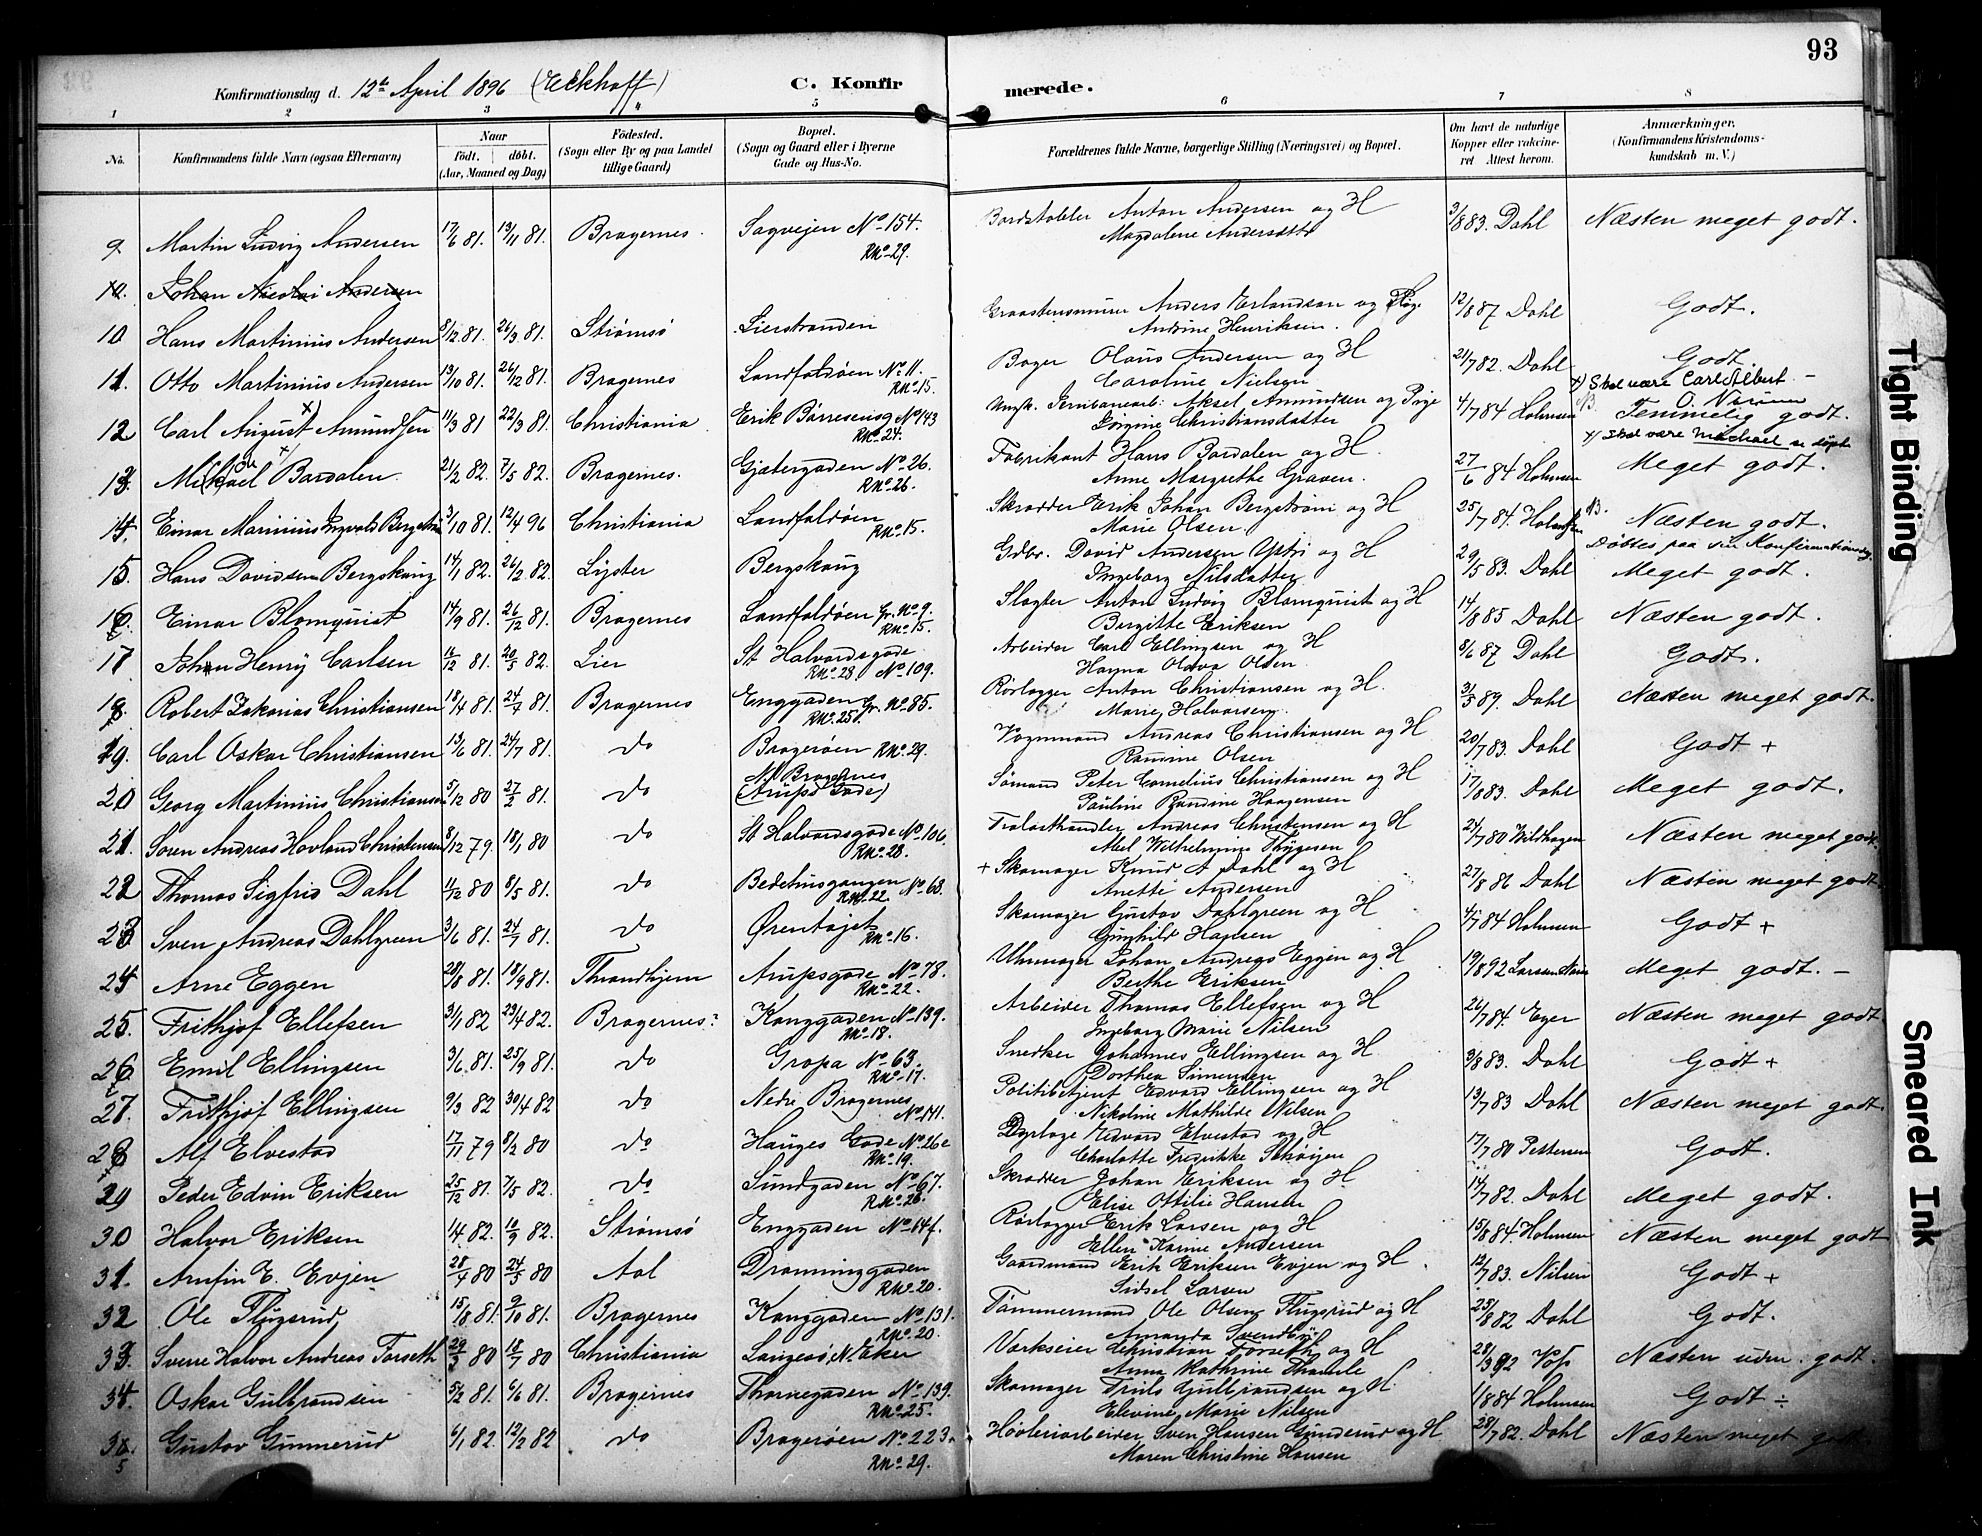 93
Konfirmationsdag d. 12te April 1896 (Eckhoff) C. Konfirmerede.
1 2 3 4 5 6 7 8
No. Konfirmandens fulde Navn (ogsaa Efternavn) Naar født. døbt. (Aar, Maaned og Dag) Fødested. (Sogn eller By og paa Landet tillige Gaard) Bopæl. (Sogn og Gaard eller i Byerne Gade og Hus-No. Forældrenes fulde Navne, borgerlige Stilling (Næringsvei) og Bopæl. Om havt de naturlige Kopper eller vakcineret Attest herom. Anmærkninger. (Konfirmandens Kristendomskundskab m. V.)
9. Martin Ludvig Andersen 17/6 81. 13/11 81. Bragernes. Sagvejen No 154. RNo 29. Anton Andersen og H Magdalene Andersdatter 3/8 83. Dahl Næsten meget godt.
10. Johan Nicolai Andersen
10 Hans Martinius Andersen 8/12 81. 26/3 81. Strømsø Lierstranden Anders Erlandsen og Pige Andrine Henriksen. 12/8 87 Dahl Godt.
11. Otto Martinius Andersen 13/10 81. 26/12 81. Bragernes Landfaldøen No 11. RNo 15. Bager Olaus Andersen og H Caroline Nielsen 21/7 82. Dahl Godt.
x) Skal være Carl Albert
12 Carl August x) Amundsen 11/3 81 22/3 81. Christiania Erik Børresensg No 143 RNo 24. Aksel Amundsen og Pige Jørgine Christiansdatter 4/7 84 Holmsen Temmelig godt.
13. Mikael Bardalen 21/2 82. 7/5 82. Bragernes. Gjætergaden No 26. RNo 26. Fabrikant Hans Bardalen og H. Anne Margrethe Graven. 27/6 84 Holmsen Meget godt.
14. Einar Marinius Ingvald Bergstrøm 3/10 81. 12/4 96 Christiania Landfaldøen RNo 15. Skrædder Erik Johan Bergstrøm og H Marie Olsen. 25/7 84. Holmsen Næsten godt.
Døbtes paa sin Konfirmationsdag.
15. Hans Davidsen Bergskaug 14/1 82. 26/2 82. Lister Bergskaug Gdbr. David Andersen Ystri og H Ingeborg Nilsdatter 29/5 83. Dahl Meget godt.
16. Einar Blomquist 14/9 81. 26/12 81. Bragernes Landfaldøen Gr. No 9. RNo 15. Slagter Anton Ludvig Blomquist og H Birgitte Eriksen 14/8 85 Dahl Næsten godt.
17 Johan Henry Carlsen 16/12 81. 20/5 82. Lier St Halvardsgade RNo 28 No 109. Arbeider Carl Ellingsen og H Hanna Olava Olsen 8/6 87 Dahl Godt.
18. Robert Zakarias Christiansen 18/4 81. 24/7 81. Bragernes Enggaden Gr. No 85. RNo 25. Rørlægger Anton Christiansen og H. Marie Halvorsen. 31/5 89. Dahl Næsten meget godt.
19. Carl Oskar Christiansen 13/6 81. 24/7 81. do Bragerøen RNo 29. Vognmand Andreas Christiansen og H Ramine Olsen 20/7 83. Dahl Godt +
20 Georg Martinius Christiansen 5/12 80 27/2 81. do N. Bragernes (Arups Gade) Sømand Peter Cornelius Christiansen og H Pauline Randine Haagensen 17/8 83. Dahl Meget godt.
21. Søren Andreas Hovland Christensen 8/12 79. 18/1 80 do St Halvardsgade No 106 RNo 28. Trælasthandler Andreas Christensen og H Abel Wilhelmine Thygesen 24/7 80 Wildhagen Næsten meget godt.
22 Thomas Sigfrid Dahl 11/12 80 8/5 81. do Bedehusgangen No 63. RNo 22. + Skomager Knud A Dahl og H Anette Andersen 27/8 86 Dahl Næsten meget godt
23 Sven Andreas Dahlgreen 3/6 81. 24/7 81. do Ørentøjet RNo 16. Skomager Gustav Dahlgreen og H Gunhild Hansen 4/7 84 Holmsen Godt +
24 Arne Eggen 28/8 81. 18/9 81. Throndhjem Arupsgade No 78. RNo 22. Uhrmager Johan Andreas Eggen og H Berthe Eriksen 19/8 92 Larsen Næss Meget godt. -
25. Frithjof Ellefsen 31/1 82 23/4 82. Bragernes. Konggaden No 139. RNo 18. Arbeider Thomas Ellefsen og H Ingeborg Marie Nilsen 26/7 84. Eger Næsten meget godt
26 Emil Ellingsen 3/6 81. 25/9 81. do Gropa No 63. RNo 17. Snedker Johannes Ellingsen og H Dorthea Simensen 3/8 83. Dahl Godt +
27. Frithjof Ellingsen 9/3 82 30/4 82 do Nedre Bragernes No 141. Politibetjent Edvard Ellingsen og H Nikoline Mathilde Nilsen 13/7 83 Dahl Næsten meget godt.
28 Alf Elvestad 17/1 79 8/2 80 do Hauges Gade No 26e RNo 19. Edvard Elvestad og H Charlotte Fredrikke Schøien 17/7 80 Pettersen Godt.
29 Peder Edvin Eriksen 25/12 81. 7/5 82. do Sundgaden No 67. RNo 26. Skrædder Johan Eriksen og H Elise Ottilie Hansen 14/7 82. Dahl Meget godt.
30 Halvor Eriksen 1/4 82. 10/9 82. Strømsø Enggaden No 64f. Rørlægger Erik Larsen og H Ellen Karine Andersen 15/8 84. Holmsen Næsten meget godt
31. Arnfin E. Evjen 28/4 80 24/5 80 Aal Dronninggaden RNo 20. Gaardmand Erik Eriksen Evjen og H Sidsel Larsen 12/7 83. Nilsen Godt +
32 Ole Flugsrud 15/8 81. 9/10 81. Bragernes Konggaden No 131. RNo 20. Tømmermand Ole Olsen Flugsrud og H Amanda Svendby 25/8 82 Dahl Godt.
33. Sverre Halvor Andreas Forseth 29/3 80 18/7 80 Christiania Langesø, N. Eker Værkseier Christian Forseth og H Anna Kathrine Thamle 28/3 92 Voss Næsten udm. godt.
34. Oskar Gulbrandsen 5/2 81. 6/6 81. Bragernes Thornegaden No 139. RNo 25. Skomager Truls Gulbrandsen og H Elevine Marie Nilsen 1/8 84 Holmsen Godt ÷
35 Gustav Gunnerud 6/1 82. 12/2 82 do Bragerøen No 223. RNo 29. Høvleriarbeider Sven Hansen Gunderud og H Maren Christine Hansen 28/7 82. Dahl Næsten meget godt.
Tight Binding
Smeared Ink